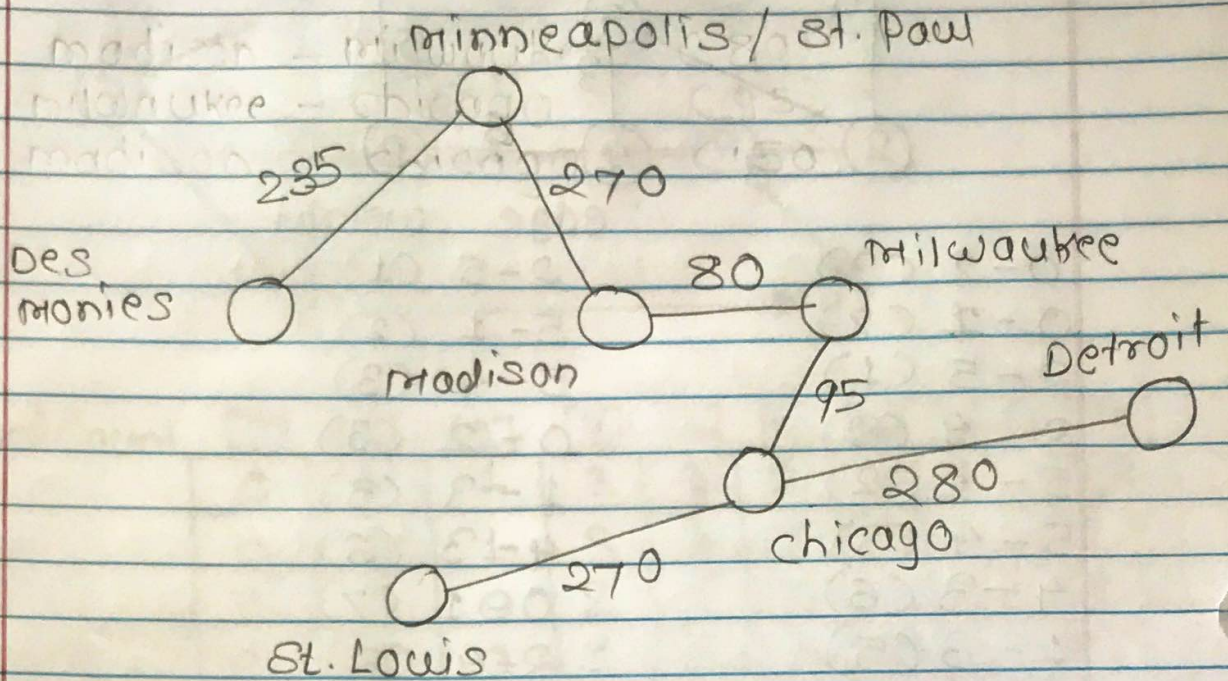 Minneapolis / St. Paul
235
270
Des
Monies
80
Milwaukee
Madison
Detroit
95
280
Chicago
270
St. Louis